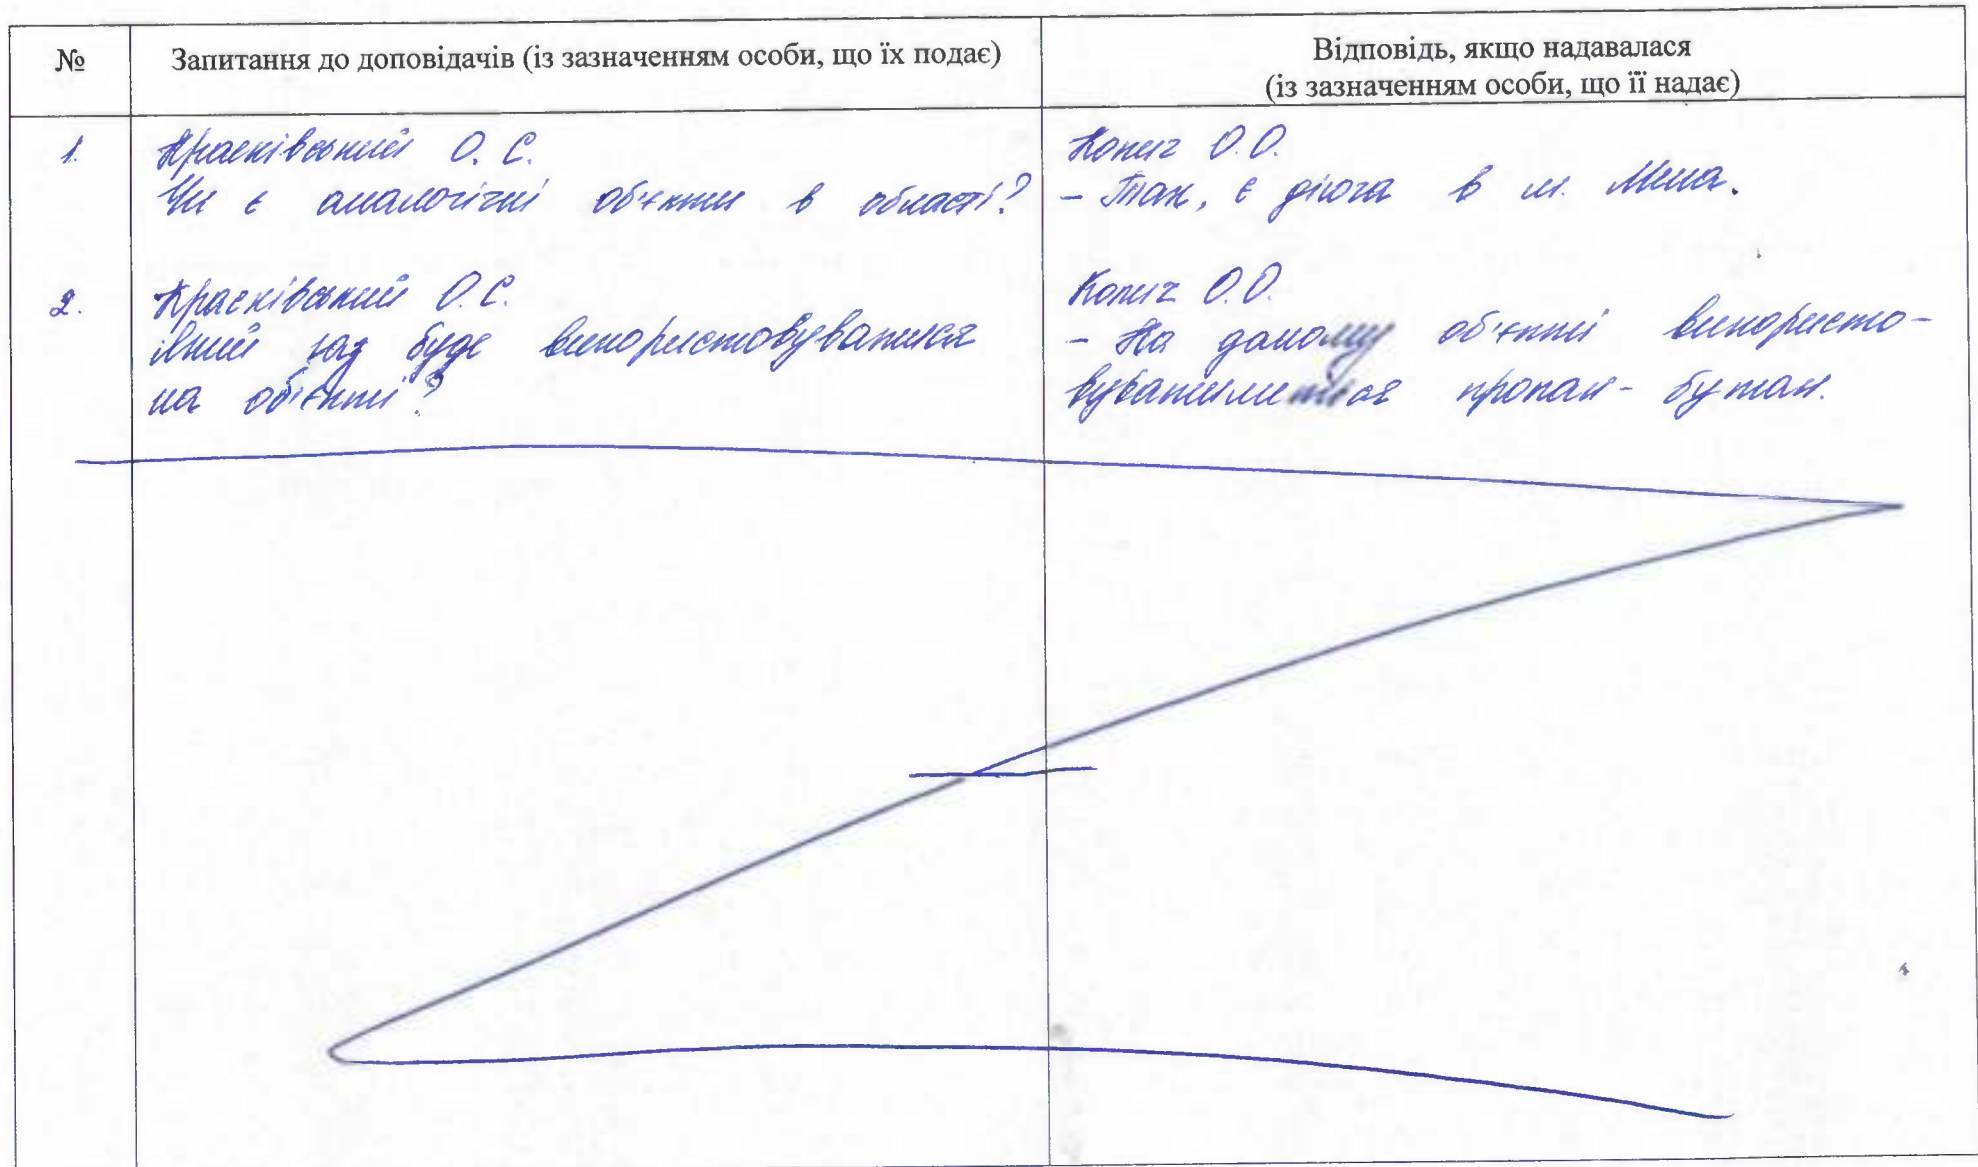 №
Запитання до доповідачів (із зазначенням особи, що їх подає)
Відповідь, якщо надавалася
(із зазначенням особи, що її надає)
1.
Красківський О. С.
Чи є аналогічні об'єкти в області?
Копич О.О.
- Так, є діюча в м. Мена.
2.
Красківський О.С.
Який газ буде використовуватися
на об'єкті?
Копич О.О.
- На даному об'єкті використо-
вуватиметься пропан-бутан.